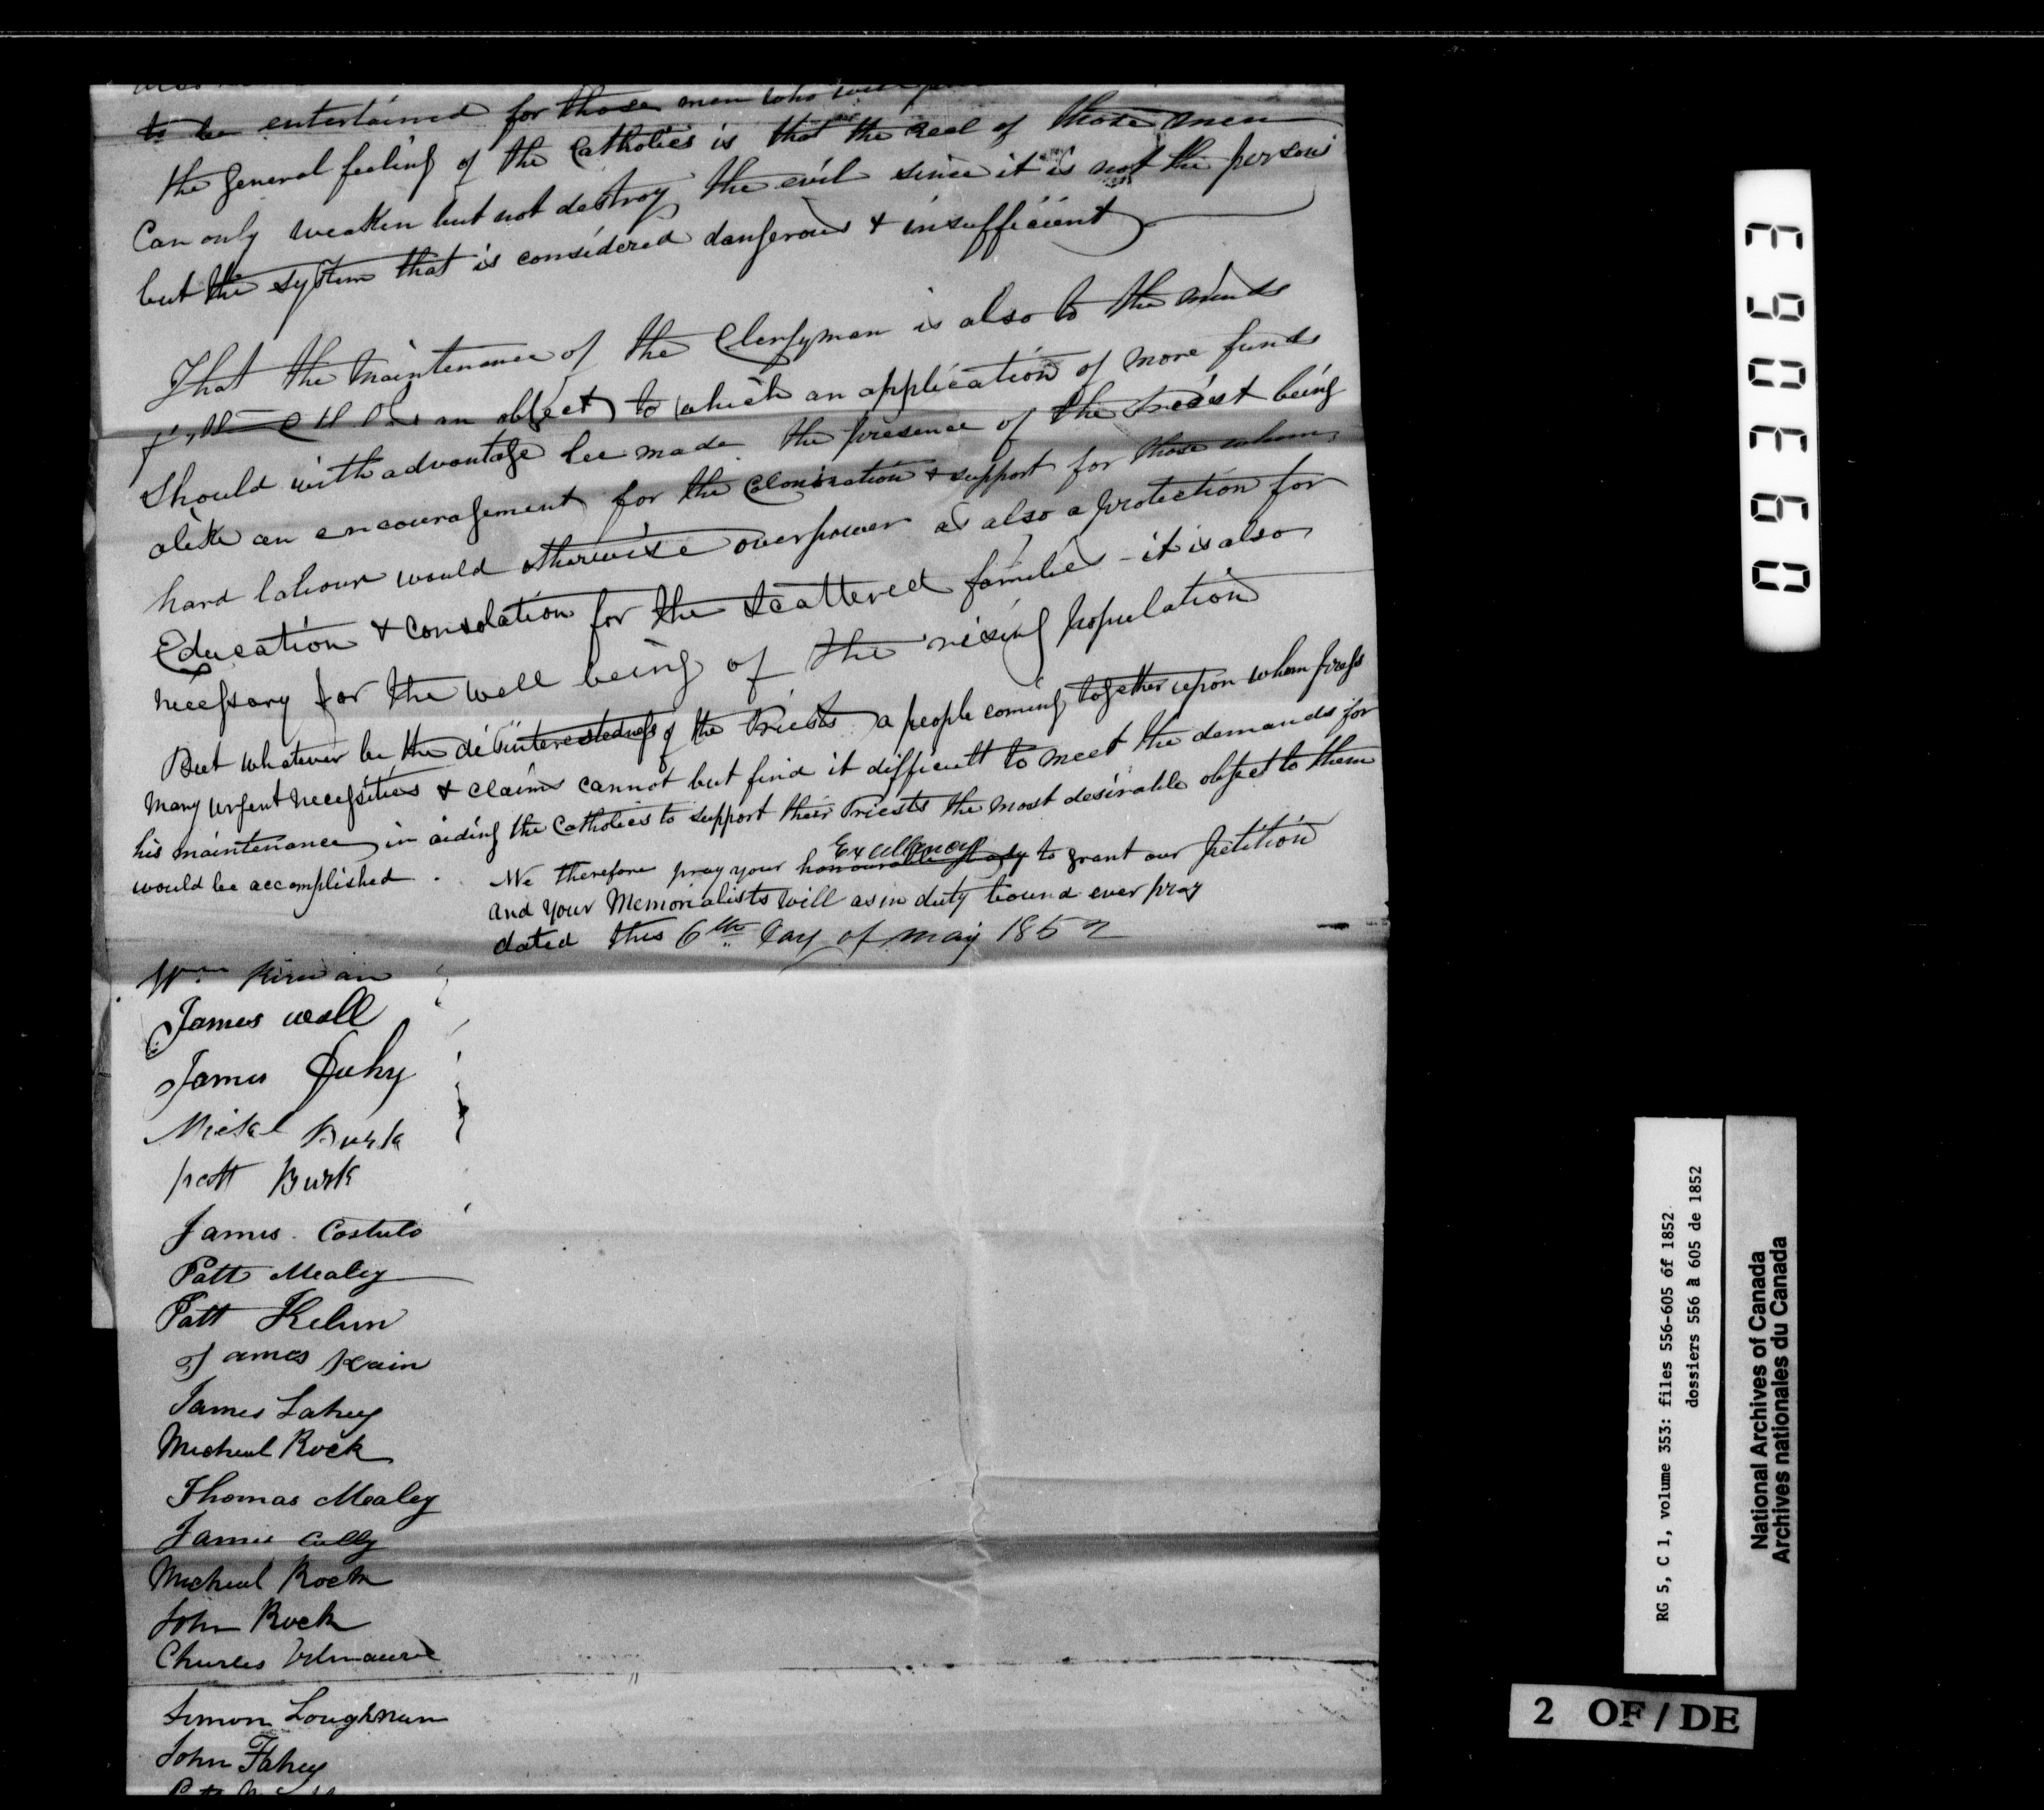 to be entertained for those men who
the general feeling of the Catholics is that the zeal of those men
Can only weaken but not destroy the evil since it is not the persons
but the system that is considered dangerous & insufficient
That the maintenance of the Clergyman is also to the minds
an object to which an application of more funds
Should with advantage be made. the presence of the Priest being
alike an encouragement for the Colonization & support for those whom
hard labour would otherwise overpower as also a protection for
Education & Consolation for the scattered families - it is also
necessary for the well being of the rising population
But whatever be the disinterestedness of the Priests a people coming together upon whom press
Many urgent necessities & claims cannot but find it difficult to meet the demands for
his maintenance in aiding the Catholics to support their Priests the most desirable object to them
would be accomplished .
Excellency
We therefore pray your honourable to grant our petition
and your Memorialists will as in duty bound ever pray
dated this 6th Day of may 1852
Wm Kirwan
James wall
James
Burk
patt Burk
James Costulo
Patt Mealey
Patt
James Kain
James Lahey
Micheal Rock
Thomas Mealey
James Cully
Micheal Rock
John Rock
Charles
Simon Loughnan
John Fahey
093063
RG 5, C 1, volume 353: files 556-605 of 1852
dossiers 556 à 605 de 1852
National Archives of Canada
Archives nationales du Canada
2 OF/DE